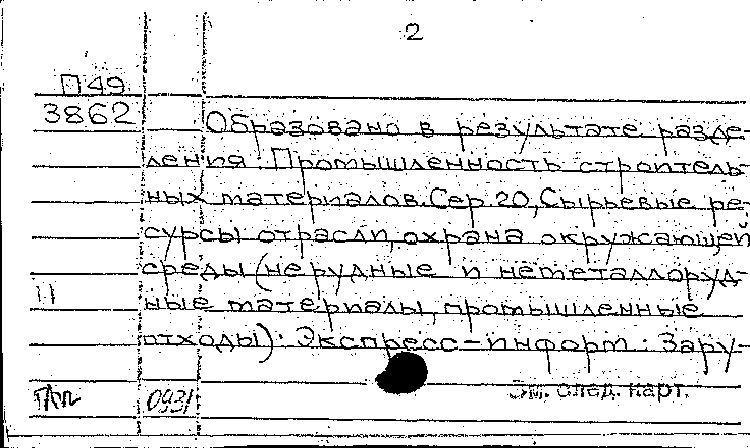 2
П49
3862
Образовано в результате разде-
ления: Промышленность строитель-
ных материалов. Сер. 20, Сырьевые ре-
сурсы отрасли, охрана окружающей
среды (нерудные и неметаллоруд-
11
ные материалы, промышленные
отходы): Экспресс-информ: Зару-
См. след. карт.
0931